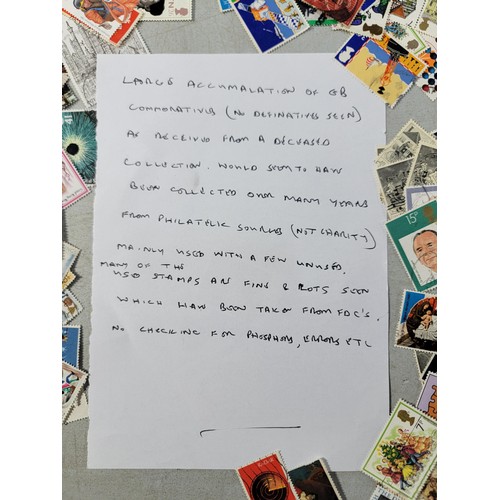 LARGE ACCUMALATION OF GB
COMMORATIVES (NO DEFINATIVES SEEN)
AS RECEIVED FROM A DECEASED
COLLECTION. WOULD SEEM TO HAVE
BEEN COLLECTED OVER MANY YEARS
FROM PHILATELIC SOURCES (NOT CHARITY)
MAINLY USED WITH A FEW UNUSED.
MANY OF THE
USED STAMPS ARE FINE & LOTS SEEN
WHICH HAVE BEEN TAKEN FROM FDC'S.
NO CHECKING FOR PHOSPHORS, ERRORS ETC
15P